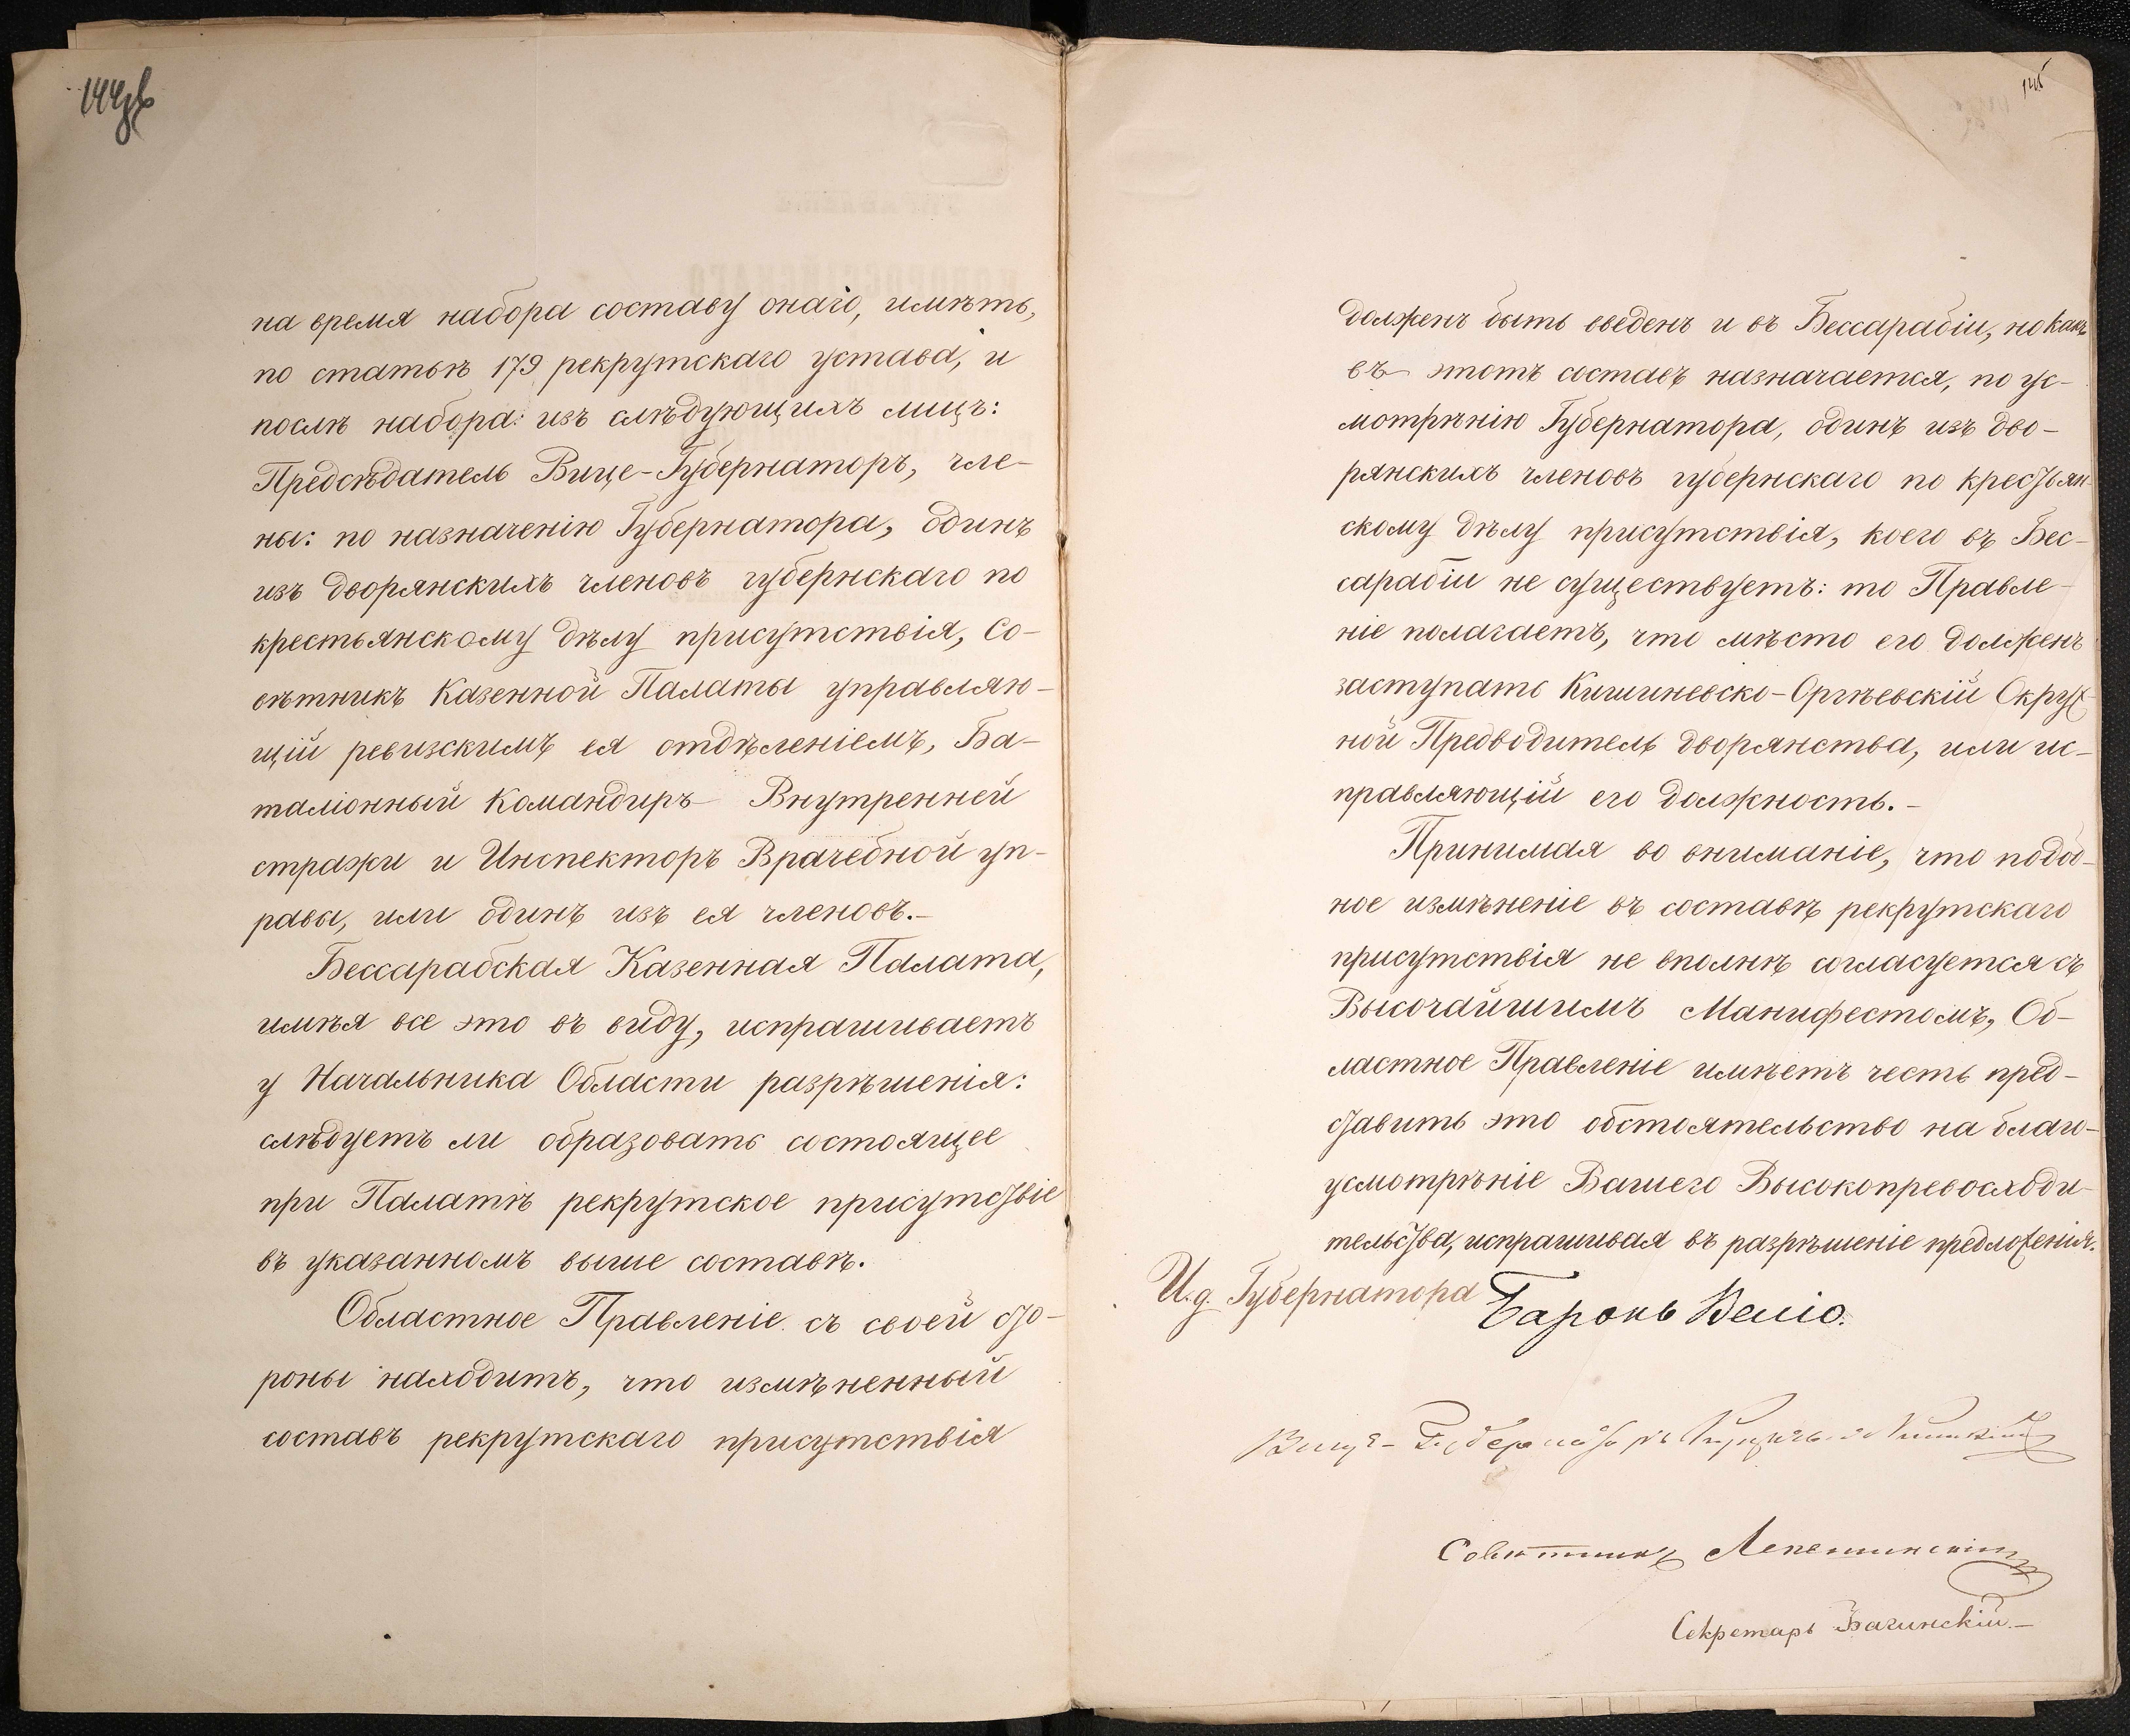 144об
на время набора составу онаго, имѣть,
по статьѣ 179 рекрутскаго устава, и
послѣ набора: изъ слѣдующихъ лицъ:
Предсѣдатель Вице-Губернаторъ, чле-
ны: по назначенію Губернатора, одинъ
изъ дворянскихъ членовъ губернскаго по
крестьянскому дѣлу присутствія, Со-
вѣтникъ Казенной Палаты управляю-
щій ревизскимъ ея отдѣленіемъ, Ба-
таліонный Командиръ Внутренней
стражи и Инспекторъ Врачебной уп-
равы, или одинъ изъ ея членовъ.-
Бессарабская Казенная Палата,
имѣя все это въ виду, испрашиваетъ
у Начальника Области разрѣшенія:
слѣдуетъ ли образовать состоящее
при Палатѣ рекрутское присутствіе
въ указанномъ выше составѣ.
Областное Правленіе съ своей сто-
роны находитъ, что измѣненный
составъ рекрутскаго присутствія
145
долженъ быть введенъ и въ Бессарабіи, но какъ
въ этотъ составъ назначается, по ус-
мотрѣнію Губернатора, одинъ изъ дво-
рянскихъ членовъ губернскаго по крестьян-
скому дѣлу присутствія, коего въ Бес-
сарабіи не существуетъ: то Правле-
ніе полагаетъ, что мѣсто его долженъ
заступать Кишиневско-Оргѣевскій Окруж-
ной Предводитель дворянства, или ис-
правляющій его должность.-
Принимая во вниманіе, что подоб-
ное измѣненіе въ составѣ рекрутскаго
присутствія не вполнѣ согласуется съ
Высочайшимъ Манифестомъ, Об-
ластное Правленіе имѣетъ честь пред-
ставить это обстоятельство на благо-
усмотрѣніе Вашего Высокопревосходи-
тельства, испрашивая въ разрѣшеніе предложенія.
И.д. Губернатора Баронъ Веліо.
Вице-Губернаторъ
Совѣтникъ Лепешинскій
Секретарь Бачинскій.-